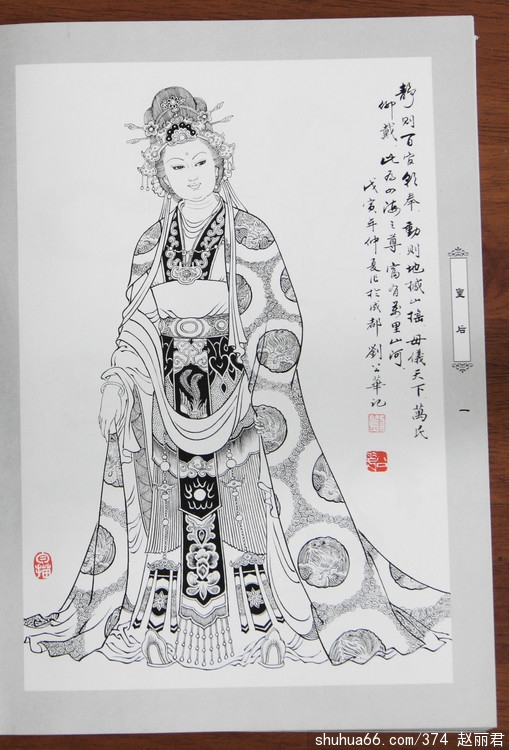 靜则百官奉動则地撼山摇母儀天下萬民
仰戴此为四海之尊富有萬里山河
戊寅年仲夏作於成都劉公華记
皇后
一
白描
shuhua66.com/374 赵丽君